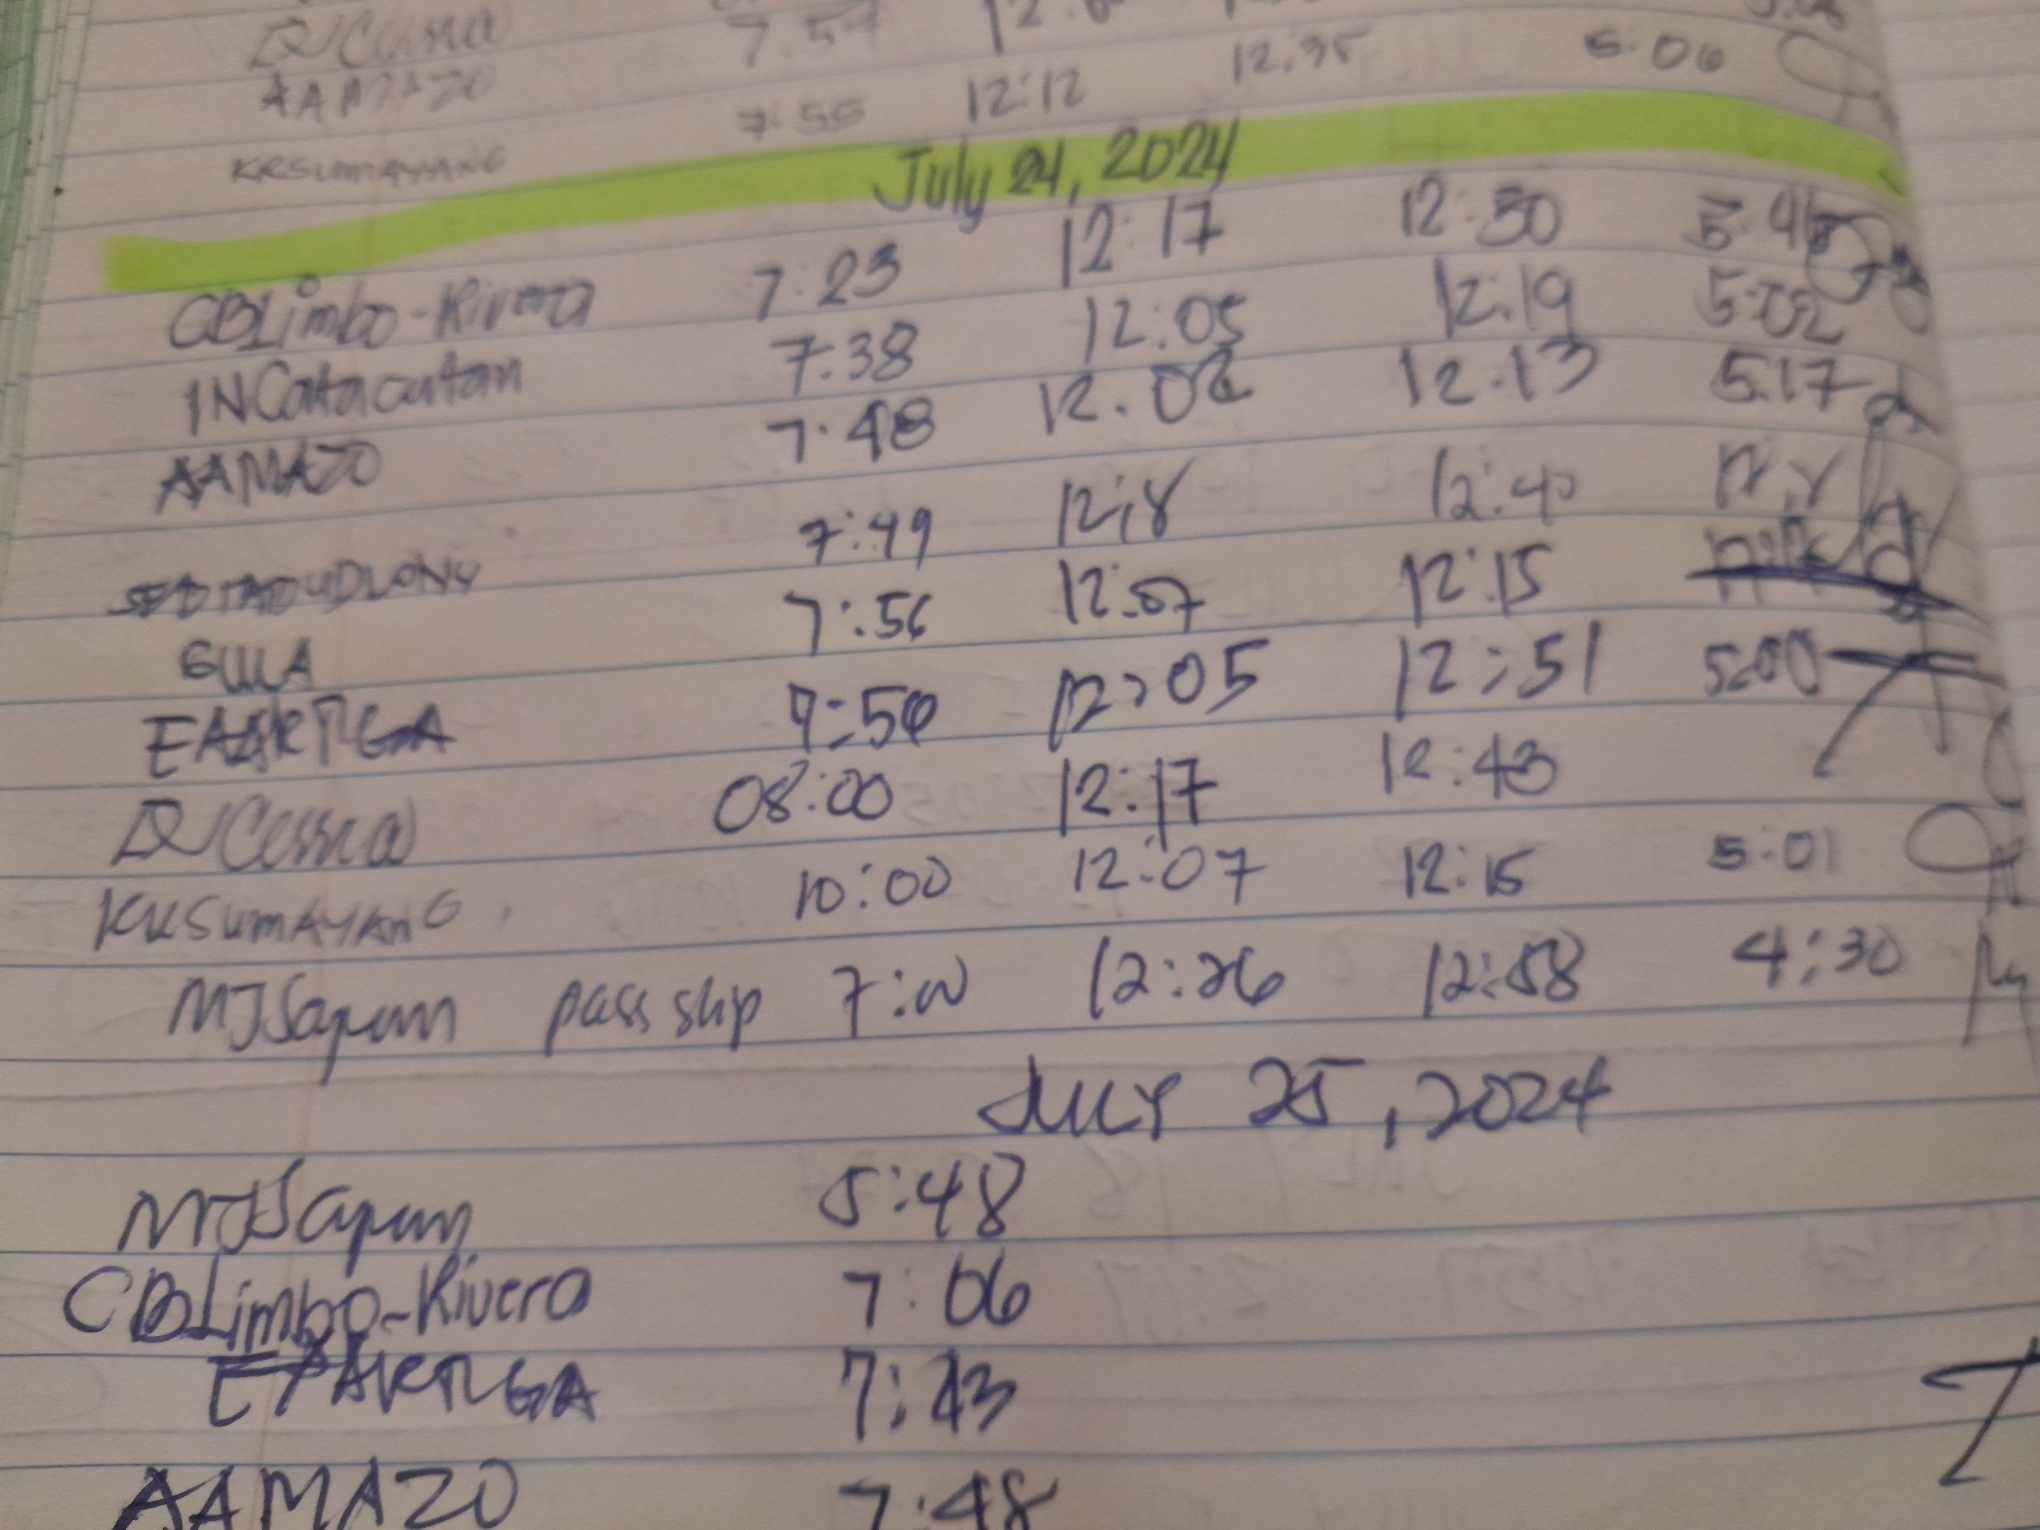 7:57
AAMAZO 12:12 12:35 5:06
KRSUMAYANG 7:55
July 24, 2024
CBLimbo-Rivera 7:23 12:17 12:30
INCatacutan 7:38 12:05 12:19 5:02
AAMAZO 7:48 12:02 12:13 5:17
7:49 12:18 12:40
7:56 12:07 12:15
EAARTIGA 7:56 12:05 12:51 5:00
08:00 12:17 12:43
KRSUMAYANG 10:00 12:07 12:15 5:01
MJSapum pass slip 7:00 12:26 12:58 4:30
JULY 25, 2024
MJSapum 5:48
CBLimbo-Rivera 7:06
EAARTIGA 7:43
AAMAZO 7:48